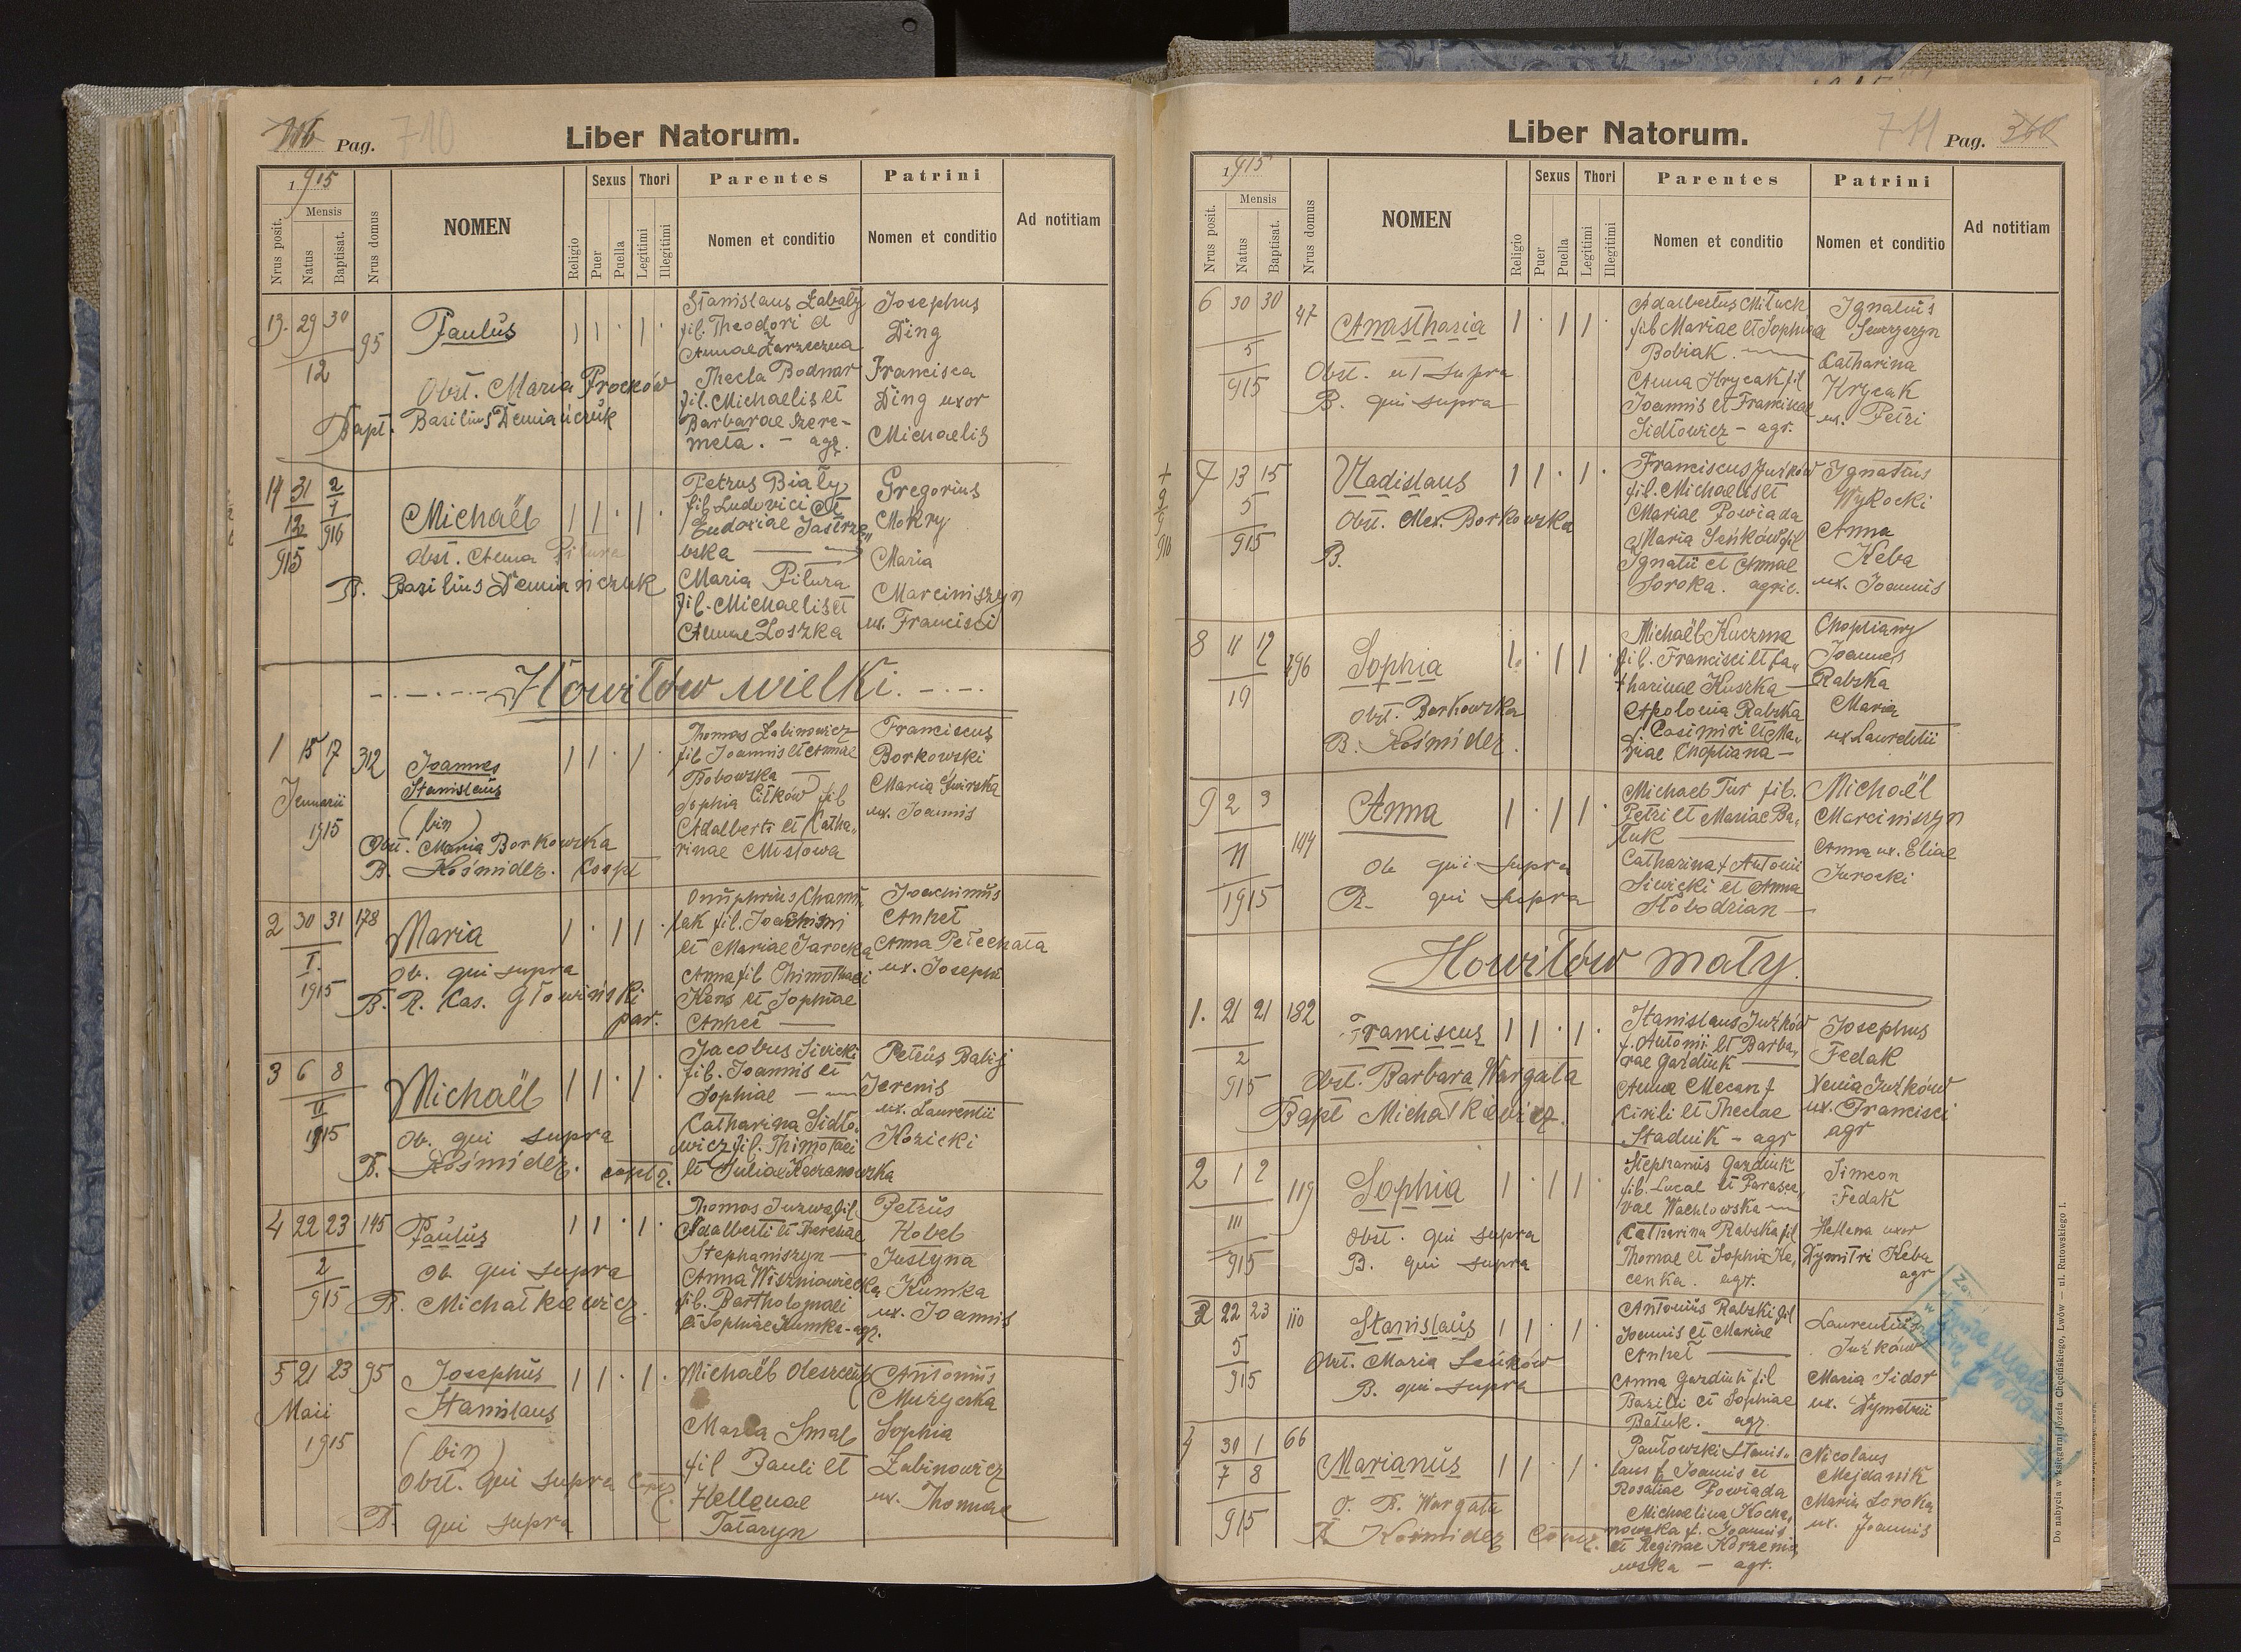 Pag. 710
Liber Natorum.
1915
Nrus posit.
Mensis
Natus
Baptisat.
Nrus domus
NOMEN
Religio
Sexus
Puer
Puella
Thori
Legitimi
Illegitimi
Parentes
Nomen et conditio
Patrini
Nomen et conditio
Ad notitiam
13. 29 30
12
95
Paulus
Obst. Maria Procków
Bapt. Basilius Demiańczuk
Stanislaus Zabaty
fil. Theodori et
Annae Zarzeczna
Thecla Bodnar
fil. Michaelis et
Barbarae Szere-
meta. - agr.
Josephus
Ding
Francisca
Ding uxor
Michaelis
14 31 2
12 1
915 916
Michaël
Obst. Anna Pilura
B. Basilius Demiańczuk
Petrus Biały
fil. Ludovici et
Eudoxiae Jastrzę„
bska
Maria Pilura
fil. Michaelis et
Annae Loszka
Gregorius
Mokry
Maria
Marciniszyn
ux. Francisci
Howiłów wielki.
1 15 17 312
Januarii
1915
Joannes
Stanislaus
(bin)
Obst. Maria Borkowska
B. Kośmider. Coopt
Thomas Łabinowicz
fil Joannis et Annae
Bobowska
Sophia Citków fil
Adalberti et Catha„
rinae Mistowa
Franciscus
Borkowski
Maria Świrska
ux. Joannis
2 30 31 178
I.
1915
Maria
Ob. qui supra
B. R. Cas. Głowiński
par.
Onuphrius Cham„
lak fil. Joachimi
et Mariae Jarocka
Anna fil. Thimothaei
Kens et Sophiae
Anhet
Joachimus
Anhet
Anna Petechata
ux. Josephi
3 6 8
II
1915
Michaël
Ob. qui supra
B. Kośmider.
Jacobus Sivicki
fil. Joannis et
Sophiae
Catharina Sidło„
wicz fil. Thimotaei
et Juliae Kochanowska
Petrus Babij
Jerenis
ux. Laurentii
Kozicki
4 22 23 145
2
915
Paulus
Ob qui supra
B. Michałkiewicz.
Thomas Juzwa fil
Adalberti et Theresiae
Stephaniszyn
Anna Wiszniowiecka
fil. Bartholomaei
et Sophiae Kumka - agr.
Petrus
Kobel
Justyna
Kumka
ux. Joannis
5 21 23 95
Maii
1915
Josephus
Stanislaus
(bin)
Obst. qui supra
B. qui supra
Michaël Oleszczuk
Maria Smal
fil Pauli et
Hellenae
Tataryn
Antonius
Muzyczka
Sophia
Łabinowicz
ux. Thomae
Liber Natorum.
711 Pag. 360
1915
Nrus posit.
Mensis
Natus
Baptisat.
Nrus domus
NOMEN
Religio
Sexus
Puer
Puella
Thori
Legitimi
Illegitimi
Parentes
Nomen et conditio
Patrini
Nomen et conditio
Ad notitiam
6 30 30 47
5
915
Anasthasia
Obst. ut supra
B. qui supra
Adalbertus Mituch
fil Mariae et Sophia
Bobiak.
Anna Hrycak fil
Joannis et Franciscae
Sidłowicz - agr.
Ignatius
Catharina
Krycak
ux. Petri
7 13 15
5
915
Vladislaus
Obst. Mar. Borkowska
B.
Franciscus Juzków
fil. Michaelis et
Mariae Powiada
Maria Seńków fil
Ignatii et Annae
Soroka. agric.
Ignatius
Wykocki
Anna
Keba
ux. Joannis
8 11 12 496
19
Sophia
Obst. Borkowska
B. Kośmider.
Michaël Kuczma
fil. Francisci et Ca„
tharinae Kuszka
Apolonia Rabska
Casimiri et Ma„
riae Choptiana
Choptiany
Joannes
Rabska
Maria
ux Laurentii
9 2 3 144
11
1915
Anna
Ob qui supra
B. qui supra
Michael Tur fil.
Petri et Mariae Ba„
tuk
Catharina f Antonii
Siwicki et Anna
Słobodzian
Michaël
Marciniszyn
Anna ux. Eliae
Jurocki
Howiłów mały.
1. 21 21 182
2
915
Franciscus
Obst. Barbara Wargata
Bapt Michałkiewicz.
Stanislaus Juzków
f. Antonii et Barba„
rae Gazdiuk
Anna Mecan f
Cirili et Theclae
Stadnik - agr
Josephus
Fedak
Xenia Juzków
ux. Francisci
agr
2 1 2 119
III
915
Sophia
Obst. qui supra
B. qui supra
Stephanus Gazdiuk
fil. Lucae et Parasce„
vae Wachlowska
Catharina Rabska fil
Thomae et Sophia Ke„
cenka. agr.
Simeon
Fedak
Hellena uxor
Dymitri Keba
agr
3 22 23 110
5
915
Stanislaus
Obst. Maria Seńków
B. qui supra
Antonius Rabski fil
Joannis et Mariae
Anhet
Anna Gazdiuk fil
Bazilii et Sophiae
Batuk. agr.
Laurentius
Juzków
Maria Sidor
ux. Dymetrii
4 30 1 66
7 8
915
Marianus
O. B. Wargata
B Kośmider
Pawłowski Stanis„
laus f. Joannis et
Rosaliae Powiada
Michaelina Kocha„
nowska f. Joannis
et Reginae Korzenio„
wska - agr.
Nicolaus
Mejdanik
Maria Soroka
ux. Joannis
Do nabycia w księgarni Józefa Chęcińskiego, Lwów — ul. Rutowskiego 1.